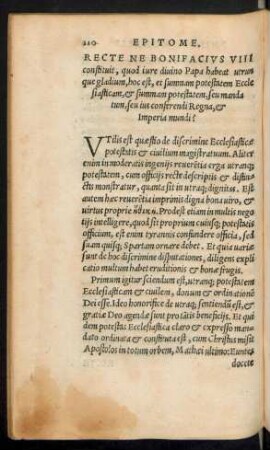 210 EPITOME.
RECTE NE BONIFACIVS VIII
constituit, quod iure diuino Papa habeat utrun
que gladium, hoc est, et summam potestatem Eccle
siasticam, & summam potestatem, seu manda
tum, seu ius conferendi Regna, &
Imperia mundi?
VTilis est quæstio de discrimine Ecclesiasticæ
potestatis & ciuilium magistratuum. Alit
enim in moderatis ingenijs reuerētia erga utranq;
potestatem, cum officijs recte descriptis & distin-
ctis monstratur, quanta sit in utraq; dignitas. Est
autem hæc reuerētia imprimis digna bono uiro, &
uirtus proprie Prodest etiam in multis nego
tijs intelligere, quod sit proprium cuiusq; potestatis
officium, est enim tyrannis confundere officia, sed
suam quisq; Spartam ornare debet. Et quia uariæ
sunt de hoc discrimine disputationes, diligens expli
catio multum habet eruditionis & bonæ frugis.
Primum igitur sciendum est, utranq; potestatem
Ecclesiasticam & ciuilem, donum & ordinationē
Dei esse. Ideo honorifice de utraq; sentiendū est, &
gratiæ Deo agendæ sunt pro tātis beneficijs. Et qui
dem potestas Ecclesiastica claro & expresso man-
dato ordinata & constituta est, cum Christus misit
Apostolos in totum orbem, Mathæi ultimo: Euntes
docete